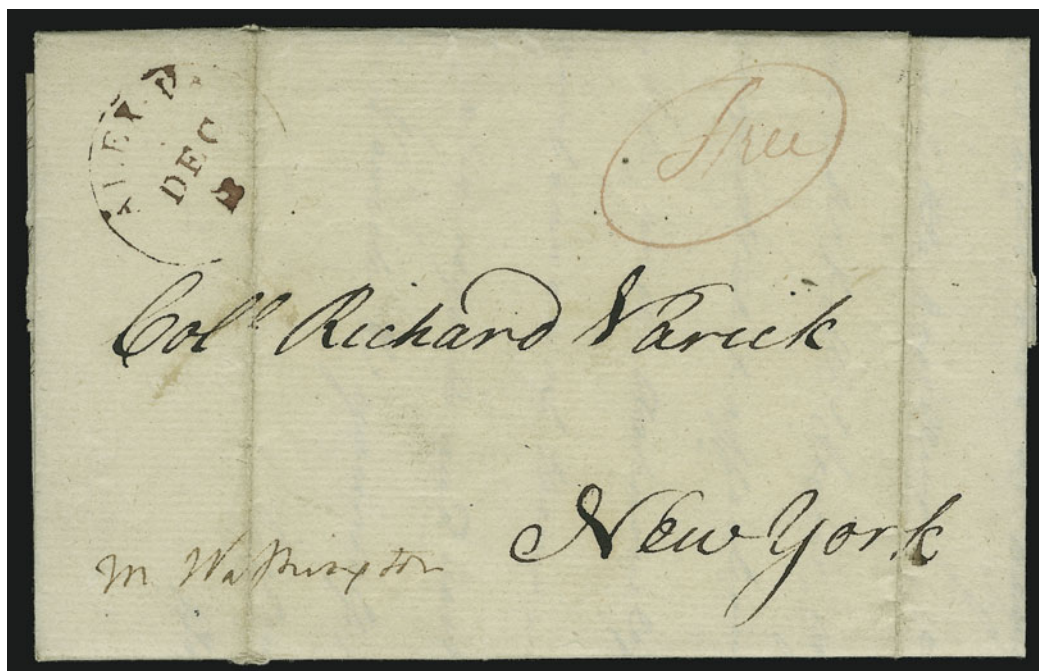 ALEX. D
DEC
8
Free
Coll.º Richard Varick
New York
M Washington